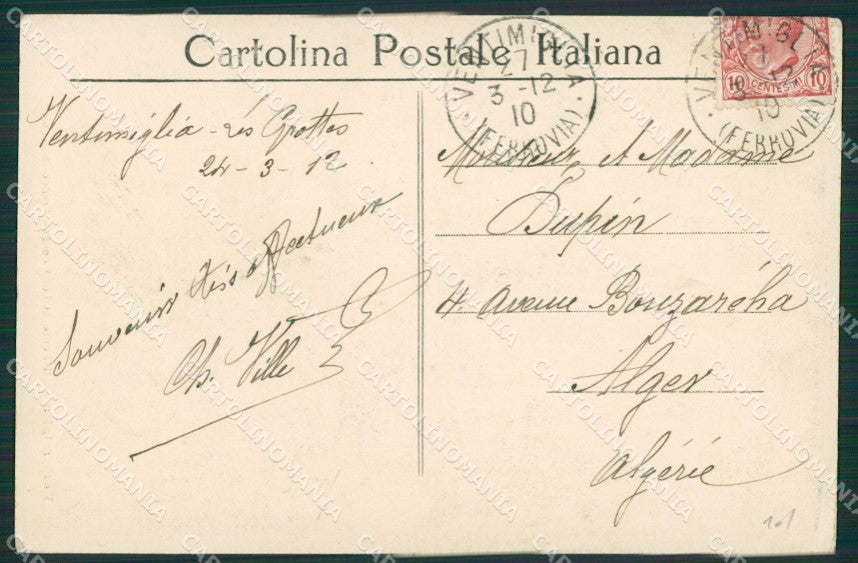 Cartolina Postale Italiana
VENTIMIGLIA
27
3-12
10
(FERROVIA)
VENTIMIGLIA
3 12
10
(FERROVIA)
10 CENTESIMI 10
Ventimiglia - les Grottes
24-3-12.
Souvenirs très affectueux
Ch. Ville
Monsieur et Madame
Dupin
4. Avenue Bouzaréha
Alger
Algérie
101
CARTOLINOMANIA